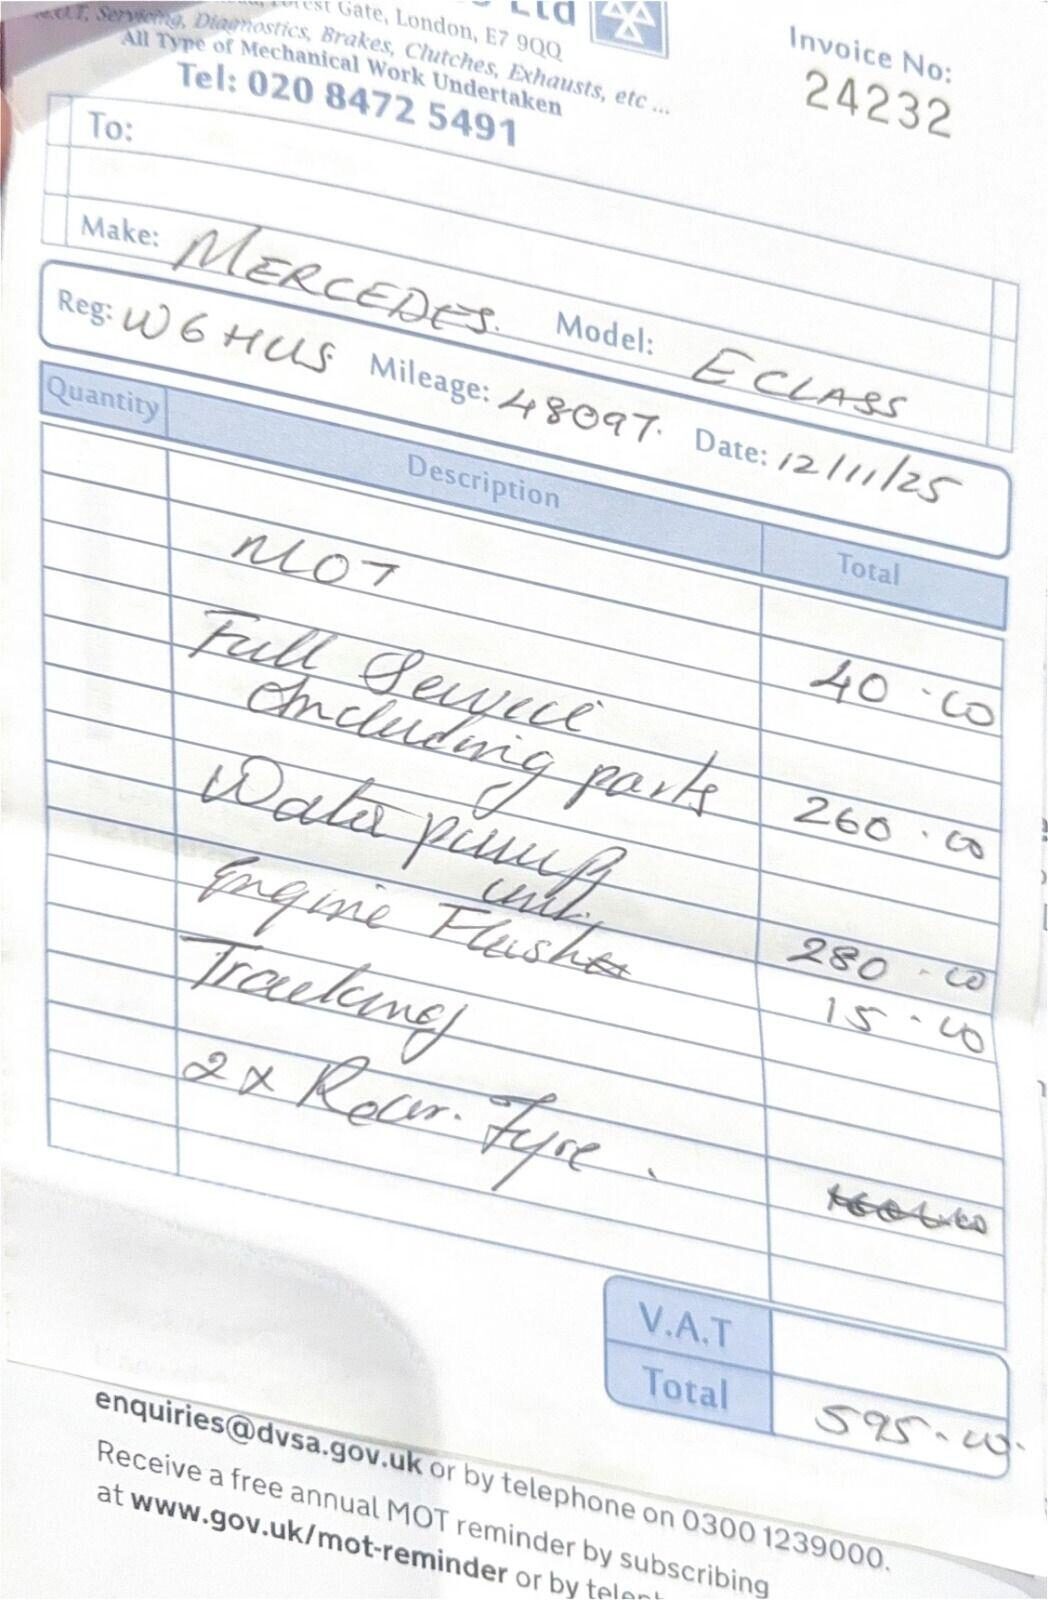 Ltd
Forest Gate, London, E7 9QQ
M.O.T, Servicing, Diagnostics, Brakes, Clutches, Exhausts, etc ...
All Type of Mechanical Work Undertaken
Tel: 020 8472 5491
Invoice No:
24232
To:
Make: MERCEDES. Model: E CLASS
Reg: W6 HUS Mileage: 48097. Date: 12/11/25
Quantity Description Total
MOT 40.00
Full Service
Including parts 260.00
Water pump
unit. 280.00
Engine Flush 15.00
Tracking
2 x Rear. Tyre.
V.A.T
Total 595.00.
enquiries@dvsa.gov.uk or by telephone on 0300 1239000.
Receive a free annual MOT reminder by subscribing
at www.gov.uk/mot-reminder or by